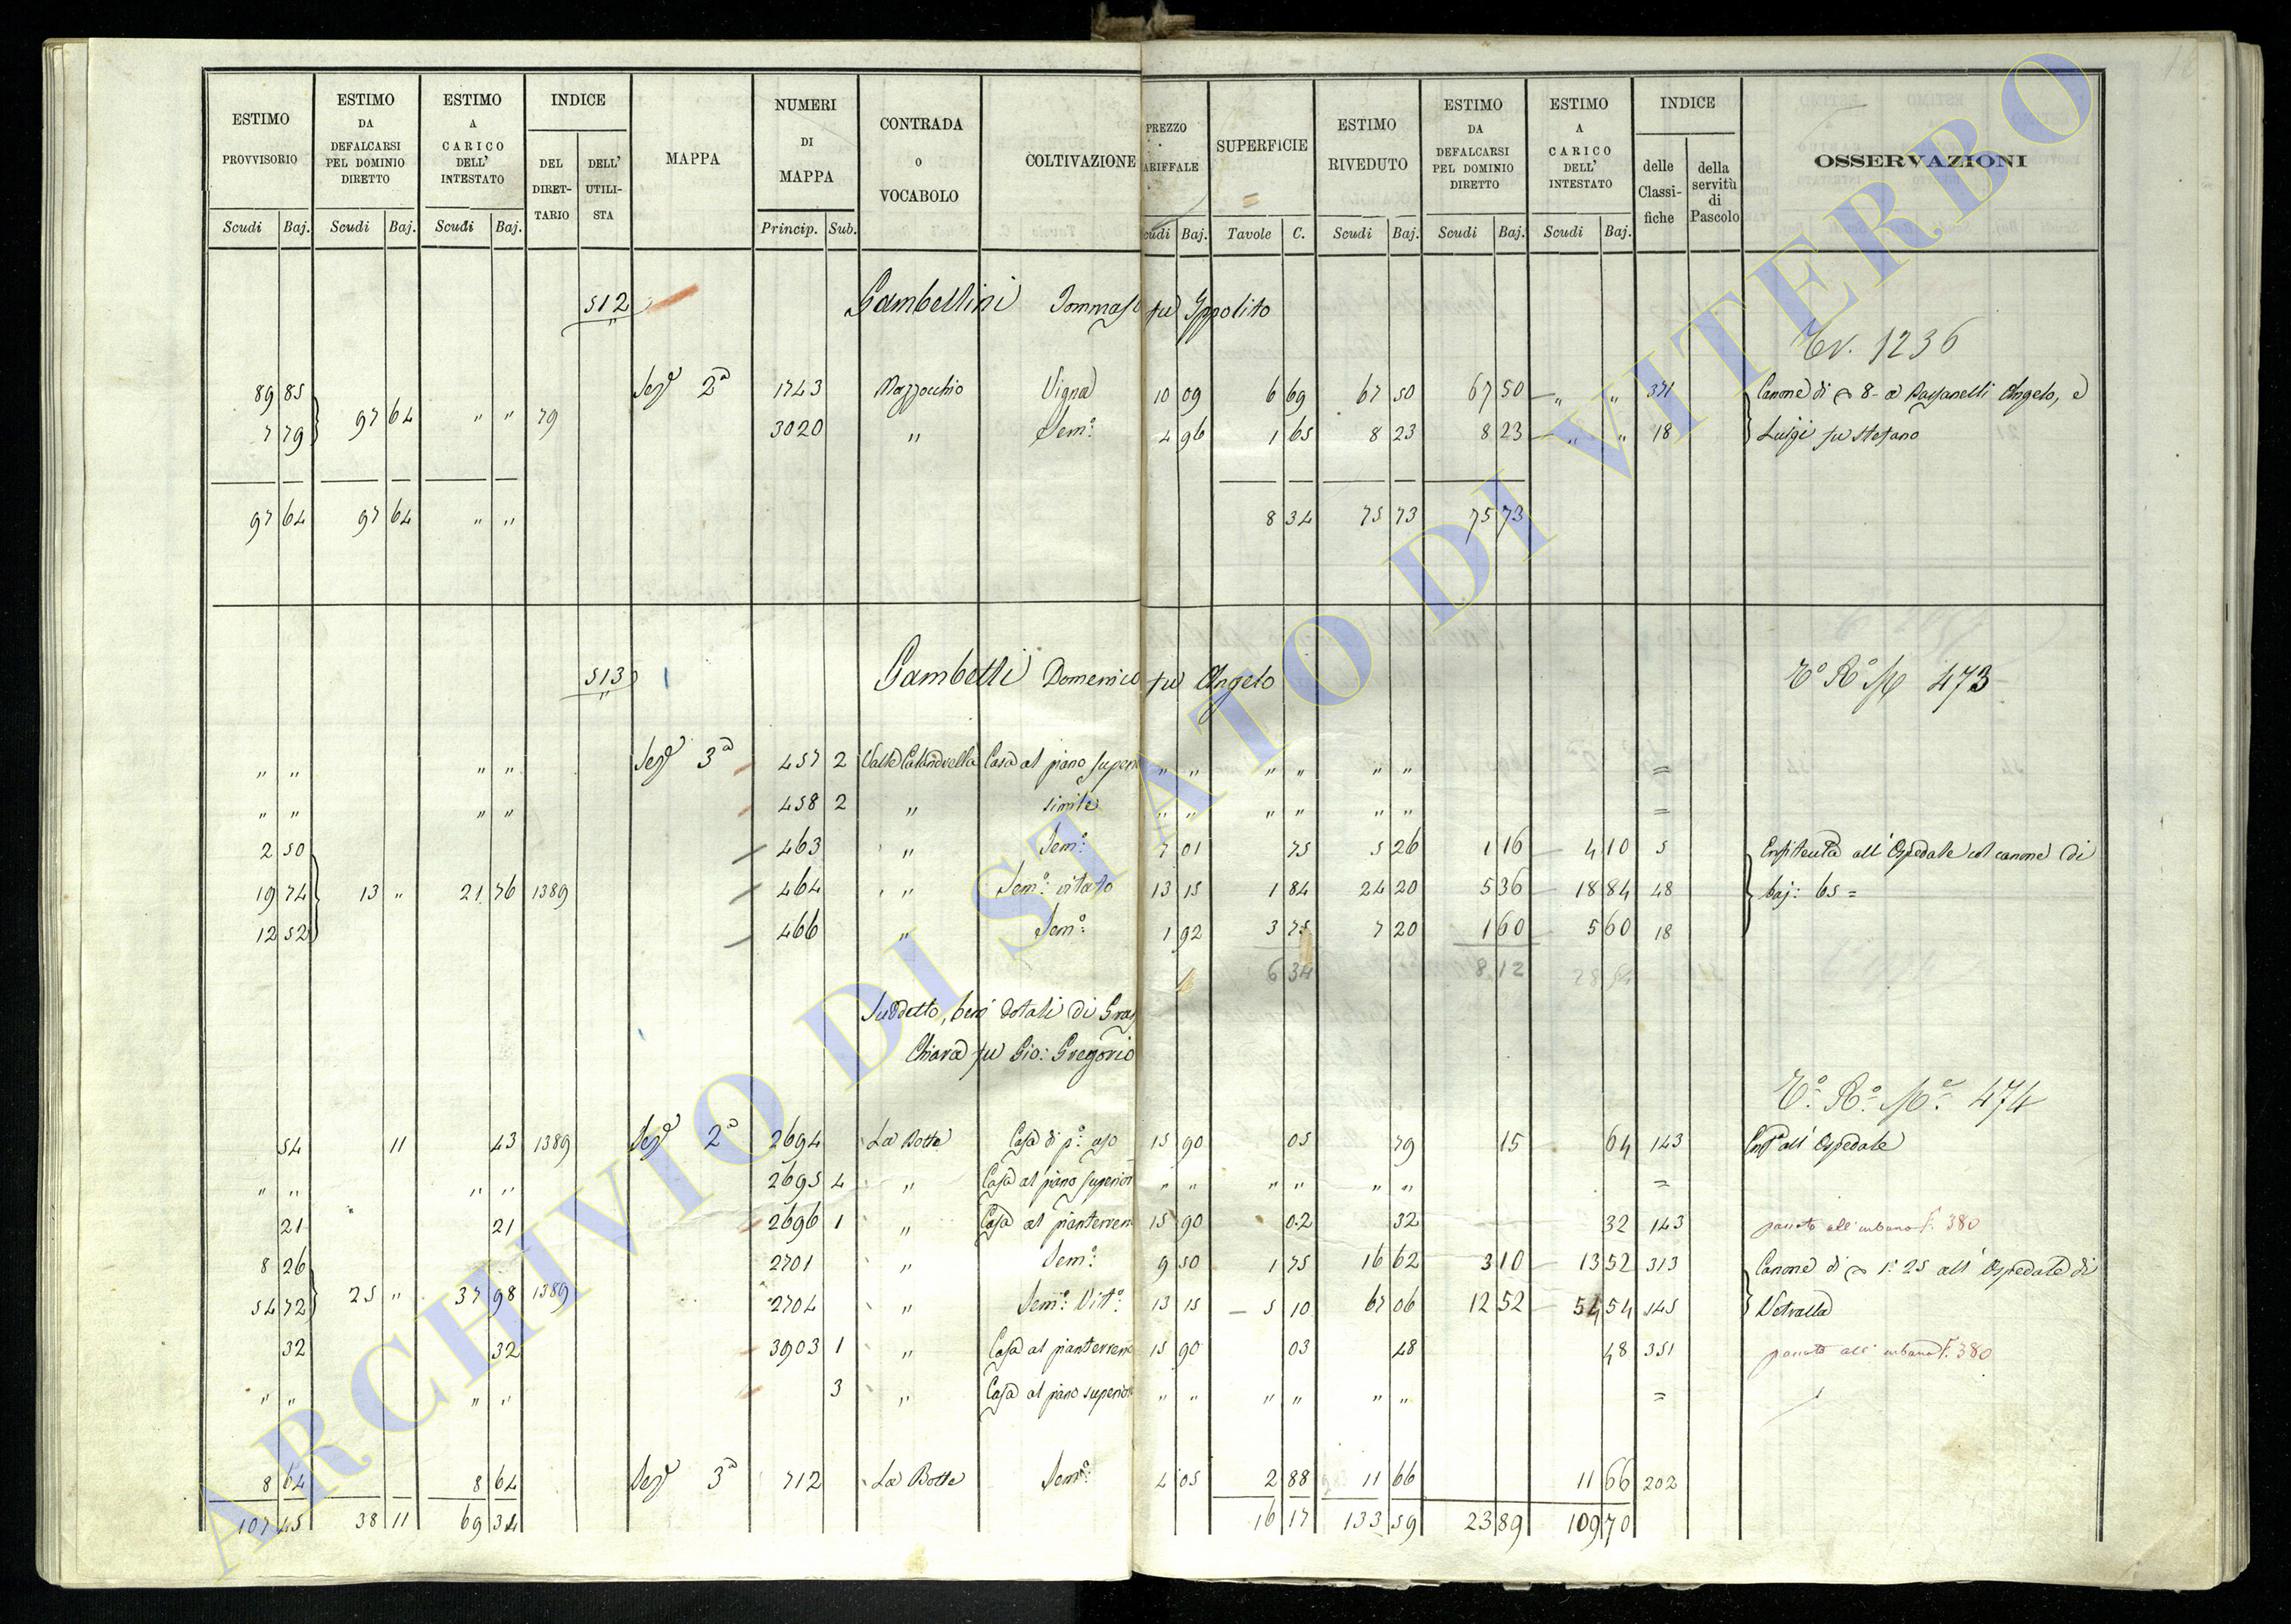 ESTIMO PROVVISORIO ESTIMO DA DEFALCARSI PEL DOMINIO DIRETTO ESTIMO A CARICO DELL' INTESTATO INDICE DEL DIRET-TARIO DELL' UTILI-STA MAPPA NUMERI DI MAPPA CONTRADA O VOCABOLO COLTIVAZIONE PREZZO ARIFFALE SUPERFICIE ESTIMO RIVEDUTO ESTIMO DA DEFALCARSI PEL DOMINIO DIRETTO ESTIMO A CARICO DELL' INTESTATO INDICE delle Classi-fiche della servitù di Pascolo OSSERVAZIONI
Scudi Baj. Scudi Baj. Scudi Baj. Princip. Sub. cudi Baj. Tavole C. Scudi Baj. Scudi Baj. Scudi Baj.
512 Gambellini Tommaso fu Ippolito
1236
89 85 Sezᵉ 2ª 1743 Mazzocchio Vigna 10 09 6 69 67 50 67 50 " " 371 Canone di 8 - a Angelo, e
97 64 " " 79
7 79 3020 " Semº 4 96 1 65 8 23 8 23 " " 18 Luigi fu Stefano
97 64 97 64 " " 8 34 75 73 75 73
513 Gambetti Domenico fu Angelo
Tº Rº M 473
" " " " Sezᵉ 3ª 457 2 Valle Calandrella Casa al piano super " " " " " " =
" " " " 458 2 " simile " " " " " " =
2 50 463 " Semº 7 01 75 5 26 1 16 4 10 5 Enfiteuta all' Ospedale col canone di
19 74 13 " 21 76 1389 464 " Semº vitato 13 15 1 84 24 20 5 36 18 84 48 baj: 65 =
12 52 466 " Semº 1 92 3 75 7 20 1 60 5 60 18
6 34 8 12 28 54
Suddetto, beni dotali di Gras
Chiara fu Gio: Gregorio
Tº Rº Mº 474
54 11 43 1389 Sezᵉ 2ª 2694 La Botte Casa di pº uso 15 90 05 79 15 64 143 Enfª all' Ospedale
" " " " 2695 4 " Casa al piano superior " " " " " " =
21 21 2696 1 " Casa al pianterren 15 90 02 32 32 143 passato all' urbano F. 380
8 26 2701 " Semº 9 50 1 75 16 62 3 10 13 52 313 Canone di 1: 25 all' Ospedale di
25 " 37 98 1389
54 72 2704 " Semº Vitº 13 15 5 10 67 06 12 52 54 54 545 Vetralla
32 32 3903 1 " Casa al pianterren 15 90 03 48 48 351 passato all' urbano F. 380
" " " " 3 " Casa al piano superior " " " " " " =
8 64 8 64 Sezᵉ 3ª 712 La Botte Semº 4 05 2 88 11 66 11 66 202
107 45 38 11 69 34 16 17 133 59 23 89 109 70
ARCHIVIO DI STATO DI VITERBO